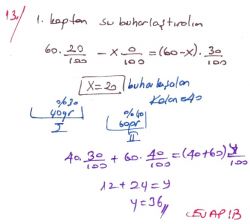 13. 1. kaptan su buharlaştıralım
60. 20/100 - x 0/100 = (60-x). 30/100
x=20 buharlaşan
Kalan=40
%30 %40
40gr 60gr
I II
40. 30/100 + 60. 40/100 = (40+60) y/100
12 + 24 = y
y = 36
CEVAP: B